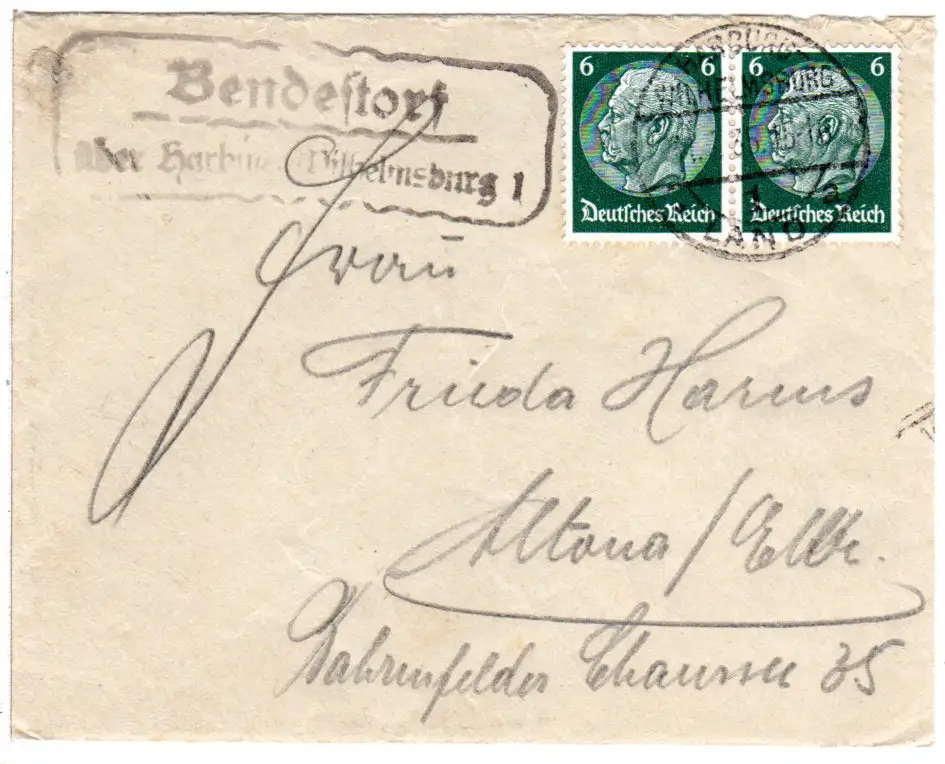 Bendestorf
über Harburg-Wilhelmsburg 1
6 6 6 6
HARBURG-
WILHELMSBURG
1 a
LAND
Deutsches Reich Deutsches Reich
Frau
Frieda Harms
Altona/Elbe.
Bahrenfelder Chaussee 35